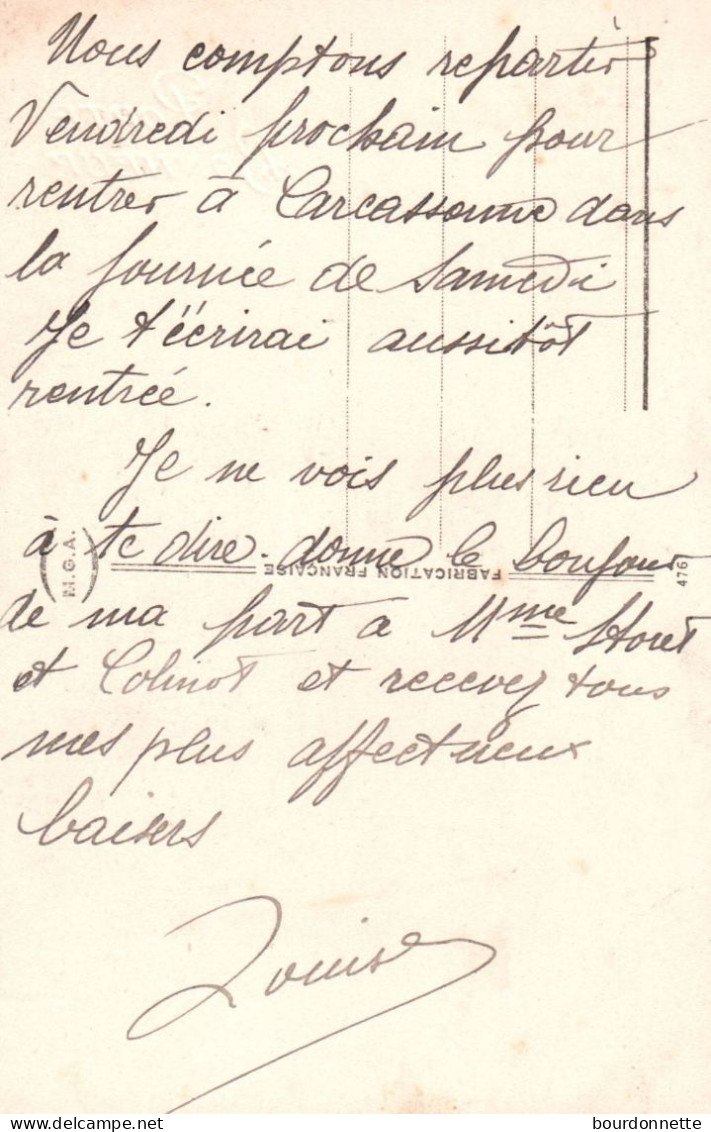 Nous comptons repartir
Vendredi prochain pour
rentrer à Carcassonne dans
la journée de Samedi
Je t'écrirai aussitôt
rentrée.
Je ne vois plus rien
à te dire. donne le bonjour
de ma part à Mme
et Colinot et recevez tous
mes plus affectueux
baisers
Louise
M.G.A.
FABRICATION FRANÇAISE
476
bourdonnette